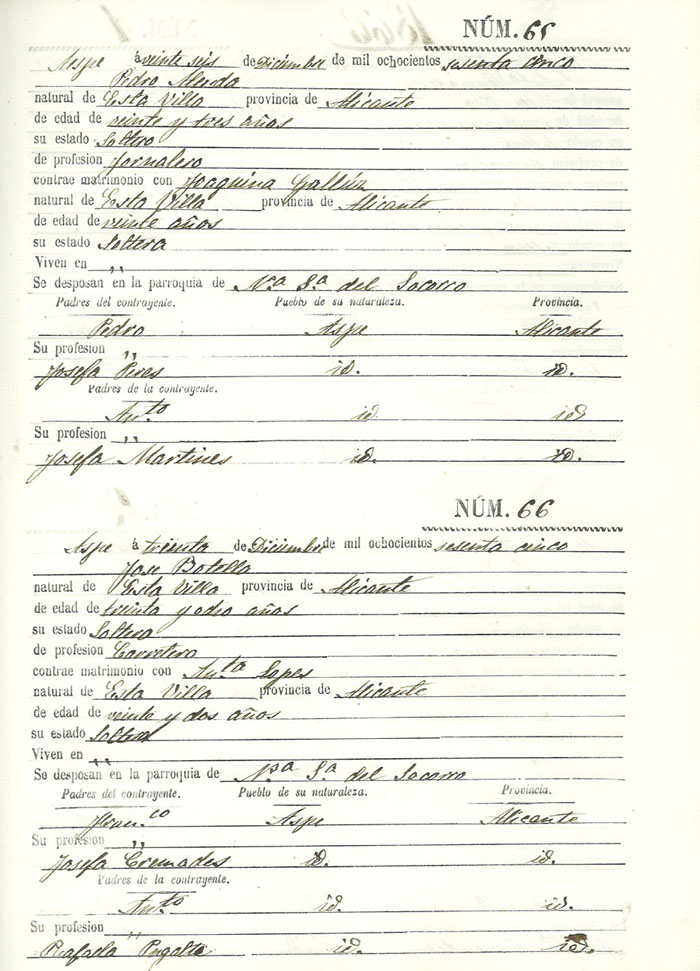 NÚM. 65
Aspe á veinte seis de Diciembre de mil ochocientos sesenta cinco
Pedro Alenda
natural de Esta Villa provincia de Alicante
de edad de veinte y tres años
su estado Soltero
de profesion Jornalero
contrae matrimonio con Joaquina Galluz
natural de Esta Villa provincia de Alicante
de edad de veinte años
su estado Soltera
Viven en "
Se desposan en la parroquia de N.ª S.ª del Socorro
Padres del contrayente. Pueblo de su naturaleza. Provincia.
Pedro Aspe Alicante
Su profesion "
Josefa Peres id. id.
Padres de la contrayente.
Ant.to id id
Su profesion "
Josefa Martines id. id.
NÚM. 66
Aspe á treinta de Diciembre de mil ochocientos sesenta cinco
Jose Botella
natural de Esta Villa provincia de Alicante
de edad de treinta y ocho años
su estado Soltero
de profesion Carretero
contrae matrimonio con Ant.ta Lopes
natural de Esta Villa provincia de Alicante
de edad de veinte y dos años
su estado Soltera
Viven en "
Se desposan en la parroquia de N.ª S.ª del Socorro
Padres del contrayente. Pueblo de su naturaleza. Provincia.
Fran.co Aspe Alicante
Su profesion "
Josefa Cremades id. id.
Padres de la contrayente.
Ant.to id. id.
Su profesion "
Rafaela id. id.